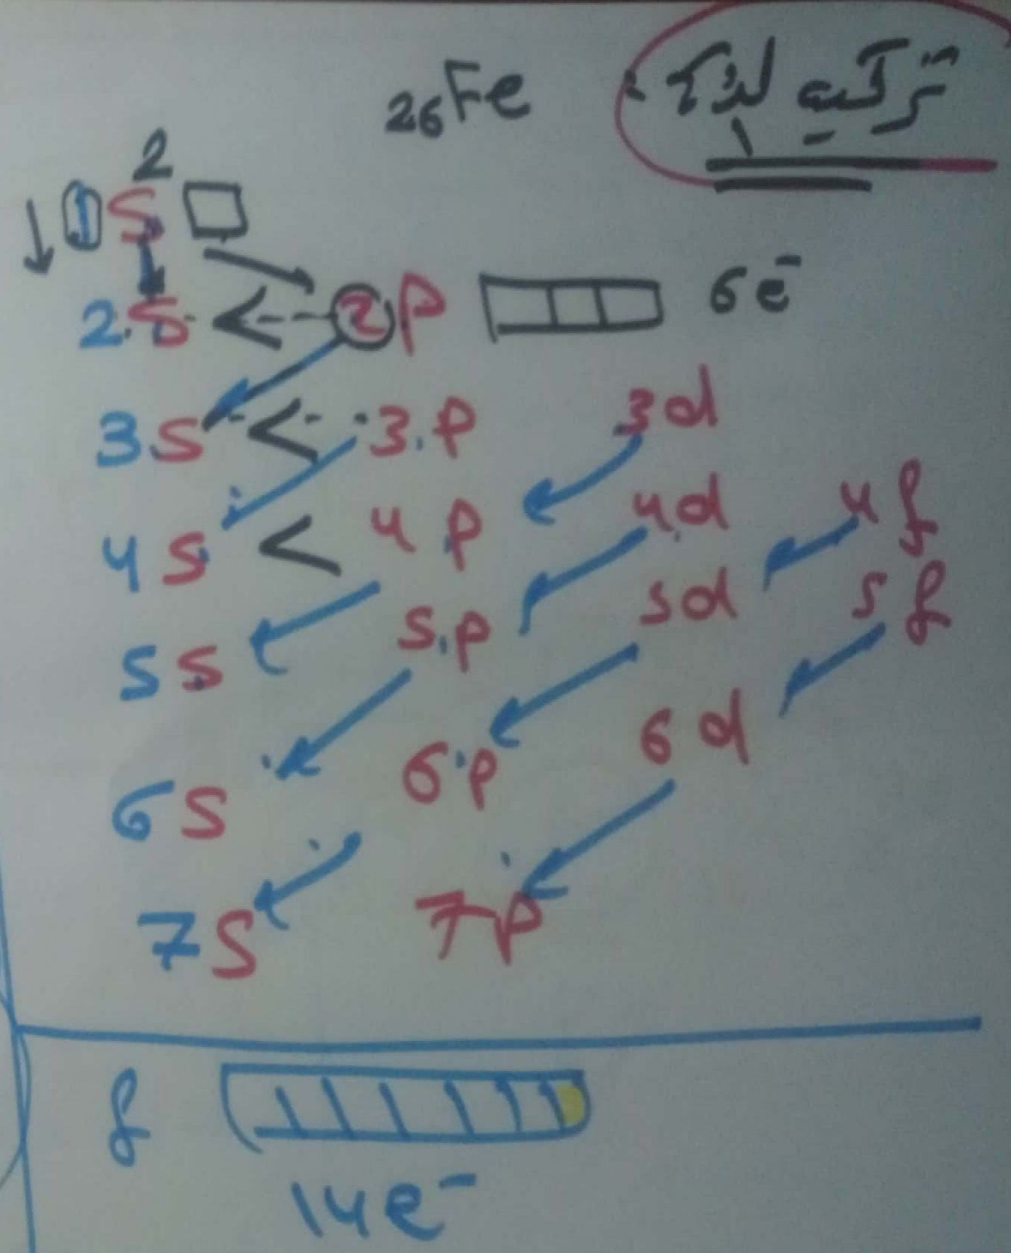 26Fe تركيب
1S 2
2S < 2P 6e⁻
3S < 3.P 3d
4S < 4P 4d 4f
5S 5.P 5d 5f
6S 6.P 6d
7S 7P
f
14e⁻